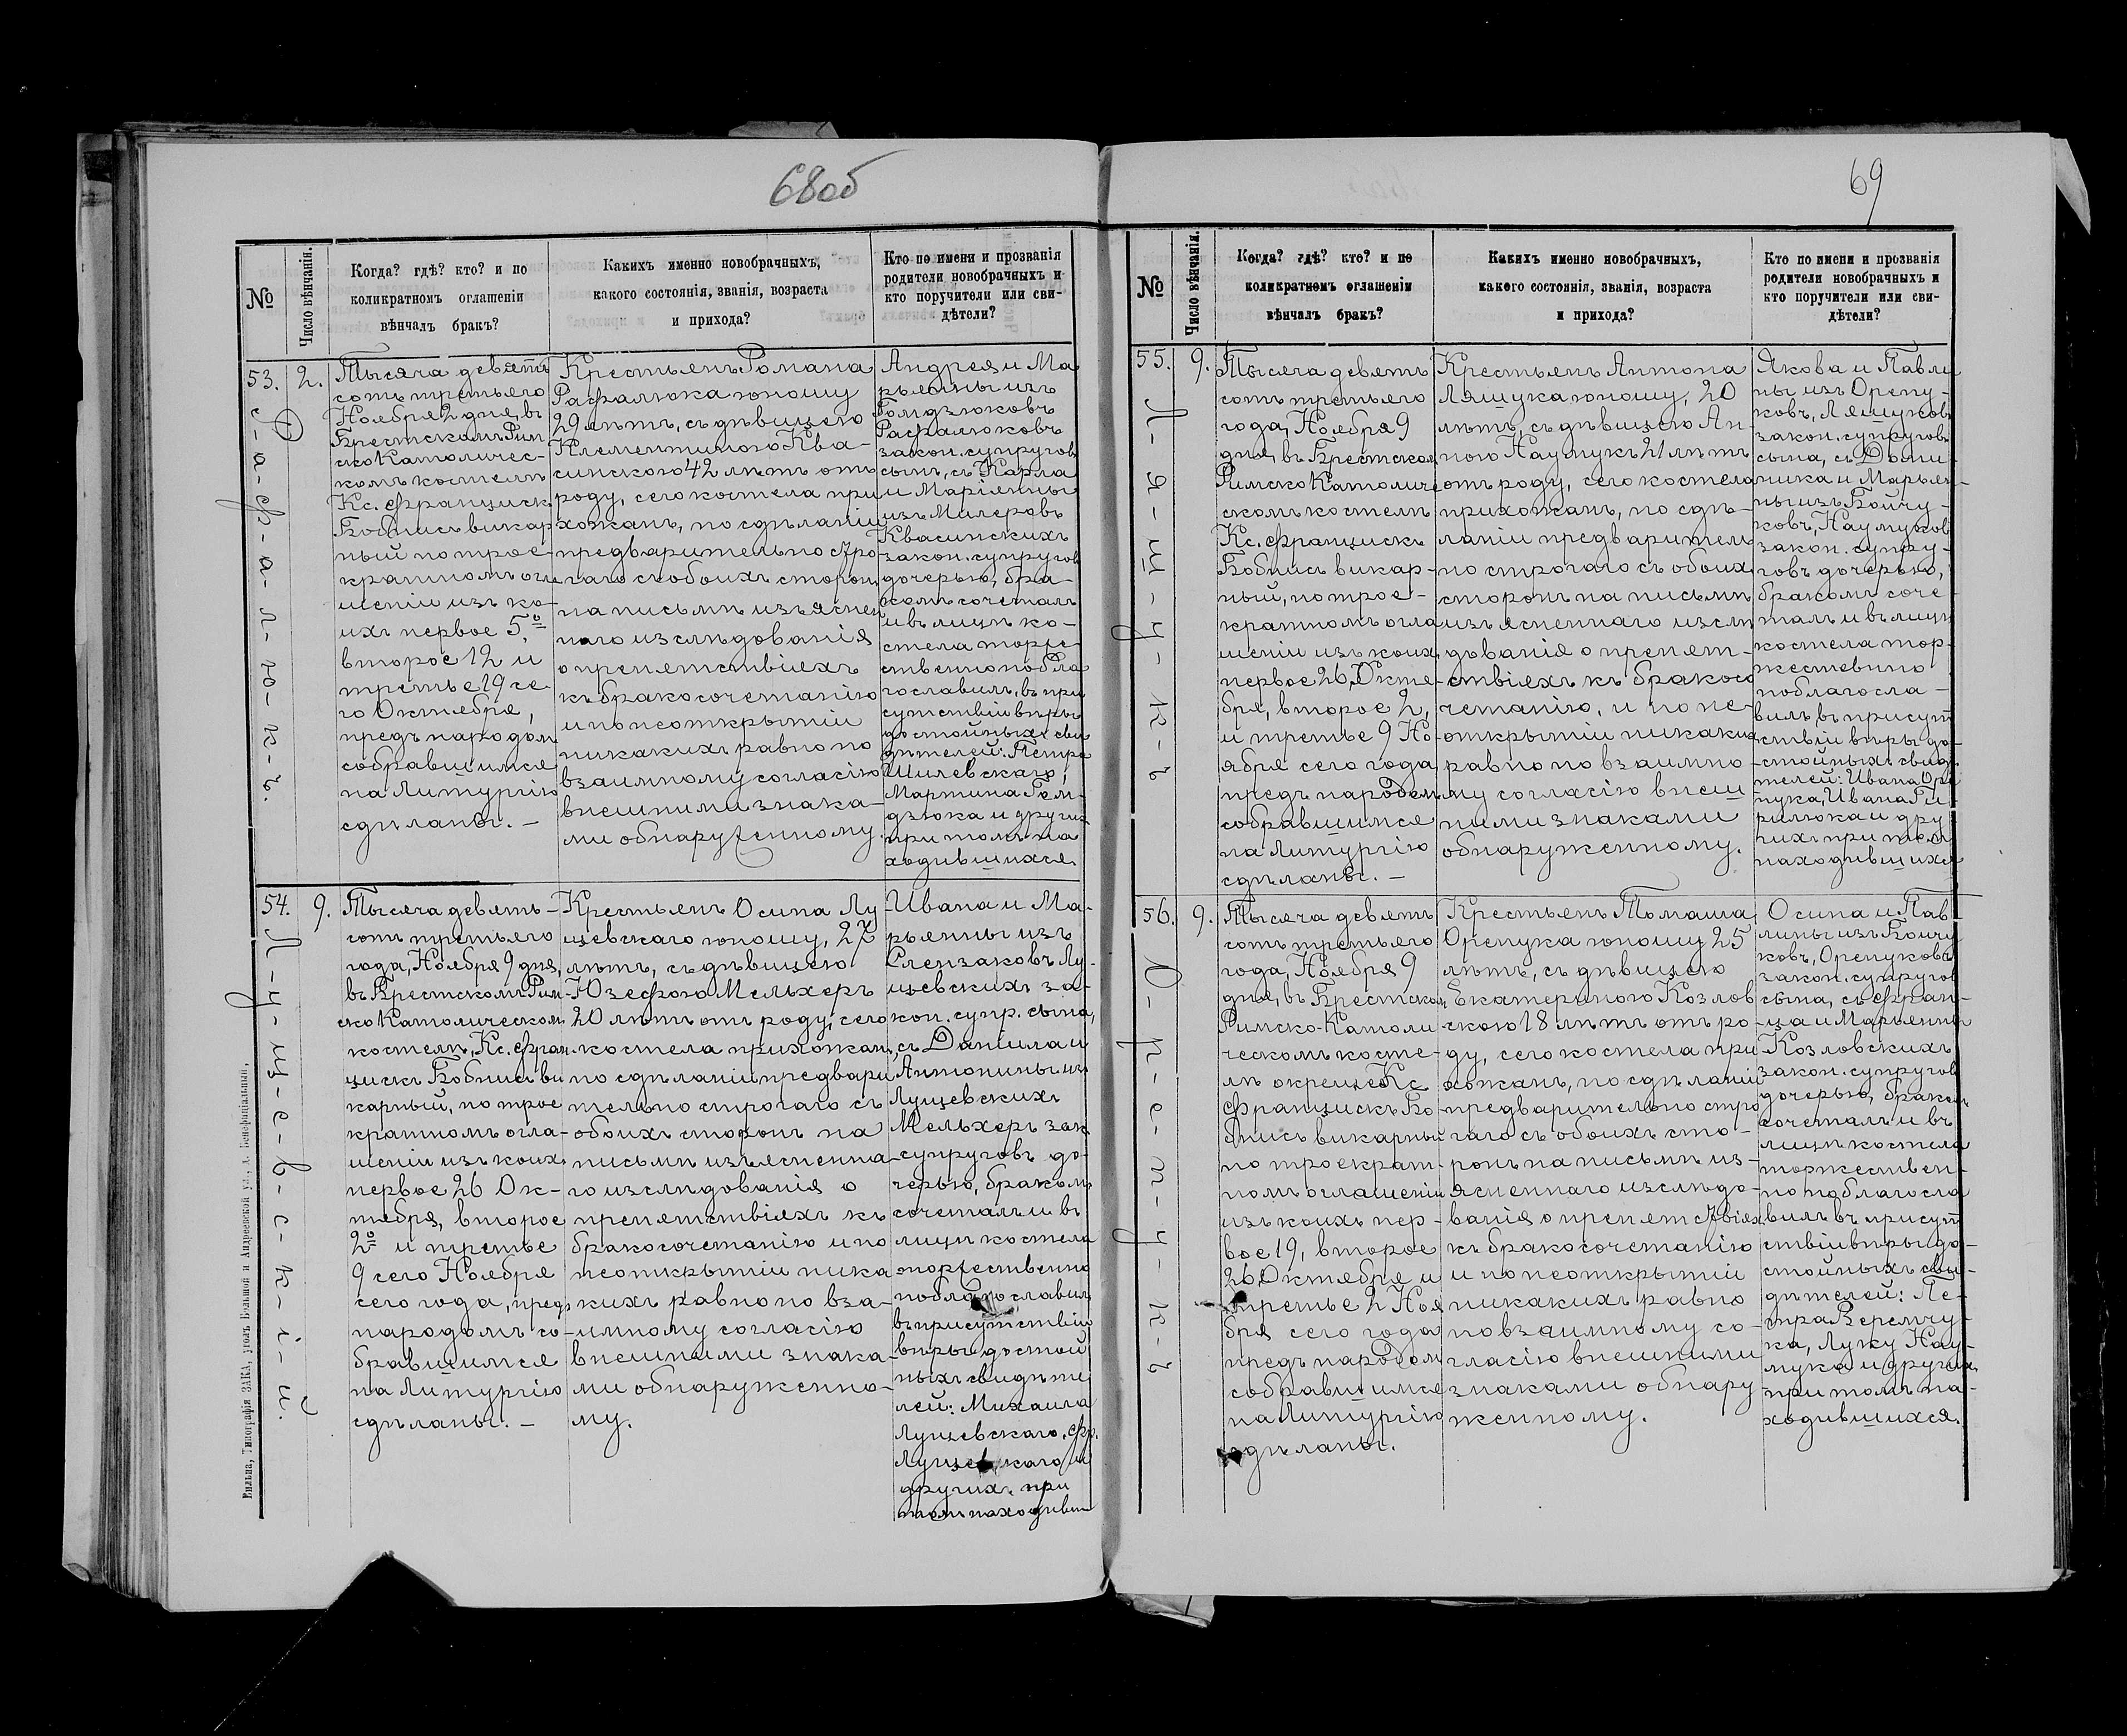 68об
№
Число вѣнчанія.
Когда? гдѣ? кто? и по
коликратномъ оглашеніи
вѣнчалъ бракъ?
Какихъ именно новобрачныхъ,
какого состоянія, званія, возраста
и прихода?
Кто по имени и прозванія
родители новобрачныхъ и
кто поручители или сви-
дѣтели?
53.
Р-а-ф-а-л-ю-к-ъ.
2.
Тысяча девятъ
сотъ третьяго
Ноября 2 дня, въ
Брестскомъ Рим
ско Католичес-
комъ костелѣ
Кс. Францискъ
Бобнисъ викар
ный по трое-
кратномъ огла
шеніи изъ ко-
ихъ первое 5º
второе 12 и
третье 19 се-
го Октября,
предъ народомъ
собравшимся
на Литургію
сдѣланы. —
Крестьянъ Романа
Рафалюка юношу
29 лѣтъ, съ дѣвицею
Клементиною Ква-
синского 42 лѣтъ отъ
роду, сего костела при
хожанъ, по сдѣланіи
предварительно стро
гаго съ обоихъ сторонъ
на письмѣ изъяснен
наго изслѣдованія
о препятствіяхъ
къ бракосочетанію
и по неоткрытіи
никакихъ равно по
взаимному согласію
внешними знака-
ми обнаруженному.
Андрея и Ма
рьянны изъ
Гомдзюковъ
Рафалюковъ
закон. супруговъ
сынъ, съ Карла
и Маріянны
изъ Милеровъ
Квасинскихъ
закон. супруговъ
дочерью, бра-
комъ сочеталъ
и въ лицѣ ко-
стела торже-
ственно побла
гословилъ, въ при
сутствіи вѣры
достойныхъ сви
дѣтелей: Петра
Шилевскаго,
Мартина Гом-
дзюка и другихъ
при томъ на
ходившихся.
54.
Л-у-щ-е-в-с-к-і-й.
9.
Тысяча девять-
сотъ третьяго
года, Ноября 9 дня,
въ Брестскомъ Рим-
ско Католическомъ
костелѣ, Кс. Фран
цискъ Бобнисъ ви
карный, по трое
кратномъ огла-
шеніи изъ коихъ
первое 26 Ок-
тября, второе
2º и третье
9 сего Ноября
сего года, предъ
народомъ со-
бравшимся
на Литургію
сдѣланы. —
Крестьянъ Осипа Лу
щевскаго юношу, 27
лѣтъ, съ дѣвицею
Юзефою Мельхеръ
20 лѣтъ отъ роду, сего
костела прихожанъ,
по сдѣланіи предвари
тельно строгаго съ
обоихъ сторонъ на
письмѣ изъясненна
го изслѣдованія о
препятствіяхъ къ
бракосочетанію и по
неоткрытіи ника
кихъ равно по вза-
имному согласію
внешними знака-
ми обнаруженно-
му.
Ивана и Ма-
рьянны изъ
Слензаковъ Лу-
щевскихъ за-
кон. супр. сына,
съ Даніила и
Антонины изъ
Лущевскихъ
Мельхеръ зак.
супруговъ до-
черью, бракомъ
сочеталъ и въ
лицѣ костела
торжественно
поблагословилъ
въ присутствіи
вѣры достой
ныхъ свидѣте
лей: Михаила
Лущевскаго, Фр.
Лущевскаго и
другихъ при
томъ находивш
Вильна, Типографія ЗАКА, уголъ Большой и Андреевской ул., д. Бенефиціальный.
69
№
Число вѣнчанія.
Когда? гдѣ? кто? и по
коликратномъ оглашеніи
вѣнчалъ бракъ?
Какихъ именно новобрачныхъ,
какого состоянія, званія, возраста
и прихода?
Кто по имени и прозванія
родители новобрачныхъ и
кто поручители или сви-
дѣтели?
55.
Л-я-ш-у-к-ъ
9.
Тысяча девятъ
сотъ третьяго
года, Ноября 9
дня, въ Брестском
Римско Католиче
скомъ костелѣ
Кс. Францискъ
Бобнисъ викар-
ный, по трое-
кратномъ огла
шеніи изъ коихъ
первое 26 Октя-
бря, второе 2,
и третье 9 Но-
ября сего года
предъ народомъ
собравшимся
на Литургію
сдѣланы. —
Крестьянъ Антона
Ляшука юношу, 20
лѣтъ, съ дѣвицею Ан-
ною Наумукъ 21 лѣтъ
отъ роду, сего костела
прихожанъ, по сдѣ-
ланіи предваритель
но строгаго съ обоихъ
сторонъ на письмѣ
изъясненнаго изслѣ
дованія о препят-
ствіяхъ къ бракосо
четанію, и по не-
открытіи никакихъ
равно по взаимно
му согласію внеш
ними знаками
обнаруженному.
Якова и Павли
ны изъ Орепу-
ковъ, Ляшуковъ
закон. супруговъ
сына, съ Доми-
ника и Марьян-
ны изъ Бойчу-
ковъ, Наумуковъ
закон. супру-
говъ дочерью,
бракомъ соче-
талъ и въ лицѣ
костела тор-
жественно
поблагосла-
вилъ, въ присут
ствіи вѣры до-
стойныхъ свидѣ
телей: Ивана Оре
пука, Ивана Ги
рилюка и дру
гихъ при томъ
находившихся
56.
О-р-е-п-у-к-ъ
9.
Тысяча девятъ
сотъ третьяго
года, Ноября 9
дня, въ Брестскомъ
Римско-Католи
ческомъ косте-
лѣ окрещ Кс
Францискъ Бо-
бнисъ викарный
по троекрат-
номъ оглашеніи
изъ коихъ пер-
вое 19, второе
26 Октября и
третье 2 Ноя
бря сего года
предъ народомъ
собравшимся
на Литургію
сдѣланы.
Крестьянъ Томаша
Орепука юношу 25
лѣтъ, съ дѣвицею
Екатериною Козлов
скою 18 лѣтъ отъ ро-
ду, сего костела при
хожанъ, по сдѣланіи
предварительно стро
гаго съ обоихъ сто-
ронъ на письмѣ из-
ясненнаго изслѣдо-
ванія о препятствіях
къ бракосочетанію
и по неоткрытіи
никакихъ равно
по взаимному со-
гласію внешними
знаками обнару
женному.
Осипа и Пав-
лины изъ Бойчу
ковъ, Орепуковъ
закон. супругов
сына, съ Фран-
ца и Марьянны
Козловскихъ
закон. супругов
дочерью, бракомъ
сочеталъ и въ
лицѣ костела
торжествен-
но поблагосло
вилъ въ присут
ствіи вѣры до-
стойныхъ сви-
дѣтелей: Пе-
тра Веремчу-
ка, Луку Нау-
мука и другихъ
при томъ на-
ходившихся.